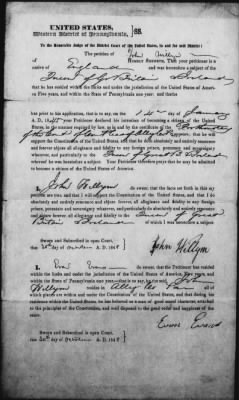 UNITED STATES,
Western District of Pennsylvania, } SS.
To the Honorable Judge of the District Court of the United States, in and for said District:
The petition of John Willym
HUMBLY SHEWETH, That your petitioner is a
native of England and was heretofore a subject of the
Queen of G Britain & Ireland
that he has resided within the limits and under the jurisdiction of the United States of America
Five years, and within the State of Pennsylvania one year: and thathe
has prior to his application, to wit, on the 14th day of January
A. D. 18 declared his intention of becoming a citizen of the United
States, in the manner required by law, as by said, by the certificate of the Prothonotary
of the
will support
the Constitution of the United States, and that he doth absolutely and entirely renounce
and forever abjure all allegiance and fidelity to any foreign prince, potentate, and sovereignty
whatever, and particularly to the Queen of Great B & Ireland
of whom he was heretofore a subject. Your Petitioner therefore prays that he may be admitted
to become a citizen of the United States.
I, John Willym do swear, that the facts set forth in this my
petition are true; that I will support the Constitution of the United States, and that I do
absolutely and entirely renounce and abjure forever, all allegiance and fidelity to any foreign
prince, potentate and sovereignty whatever, and particularly do I absolutely and entirely renounce
and abjure forever, all allegiance and fidelity to the Queen of Great
Britain & Ireland of whom I was heretofore a subject.
Sworn and Subscribed in open Court,
day of October A. D. 18
John Willym
I, Evan Evans do swear, that the Petitioner has resided
within the limits and under the jurisdiction of the United States of America, Five years, and
within the State of Pennsylvania one year, that is to say, he the said John
Willyms resided in Allegheny Penn all of
which places are within and under the Constitution of the United States, and that during his
residence within the United States, he has behaved as a man of good moral character, attached
to the principles of the Constitution, and well disposed to the good order and happiness of
the same.
Evan Evans
Sworn and Subscribed in open Court,
day of October A. D. 18